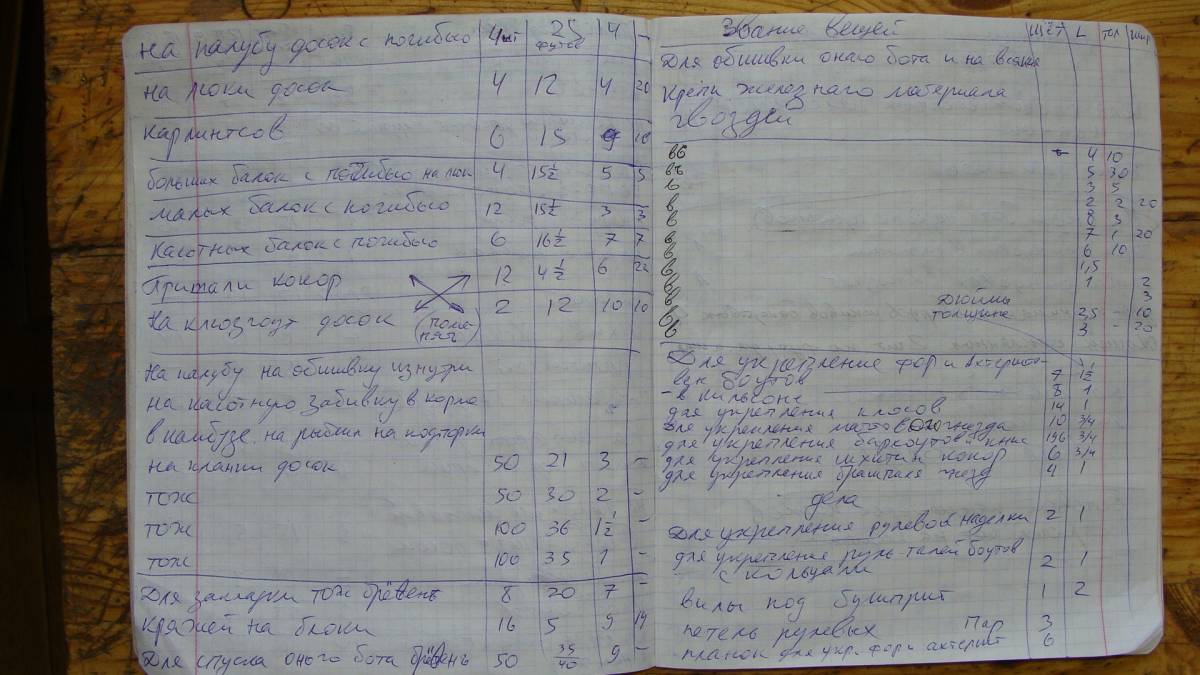 на палубу досок с погибью 4шт 25 футов 4 –
на люки досок 4 12 4 20
карлинтсов 6 15 9 18
больших балок с погибью на люк 4 15½ 5 5
малых балок с погибью 12 15½ 3 3
каютных балок с погибью 6 16½ 7 7
кокор 12 4½ 6 22
на клюзгоут досок 2 12 10 10
на палубу на обшивку изнутри
на каютную забивку в корме
в камбузе, на рыбин на подпорки
на планки досок 50 21 3 –
тож 50 30 2 –
тож 100 36 1½ –
тож 100 35 1 –
Для закладки тож брёвенъ 8 20 7 –
кряжей на блоки 16 5 9 14
Для спуска оного бота брёвенъ 50 35/40 9 –
Звание вещей щёт L тол шир
Для обшивки онаго бота и на всякие
крепи железнаго материала
гвоздей
4 10
5 30
3 5
2 2 20
8 3
7 1 20
6 10
1,5
1 2
дюймы 3
толщине 2,5 – 10
3 – 20
Для укрепления фор и ахтерште-
вен боутов 7 1½
- в кильсоне 8 1
для укрепления клюсов 14 1
для укрепления мачтового гнезда 10 3/4
для укрепления баркоутов и книс 196 3/4
для укрепления кокор 6 3/4
для укрепления брашпиля гнезд 4 1
дела
Для укрепления рулевой наделки 2 1
для укрепления руль-талей боутов
с кольцами 2 1
вилы под бушприт 1 2
петель рулевых Пар 3
планок для укр. фор и ахтершт 6